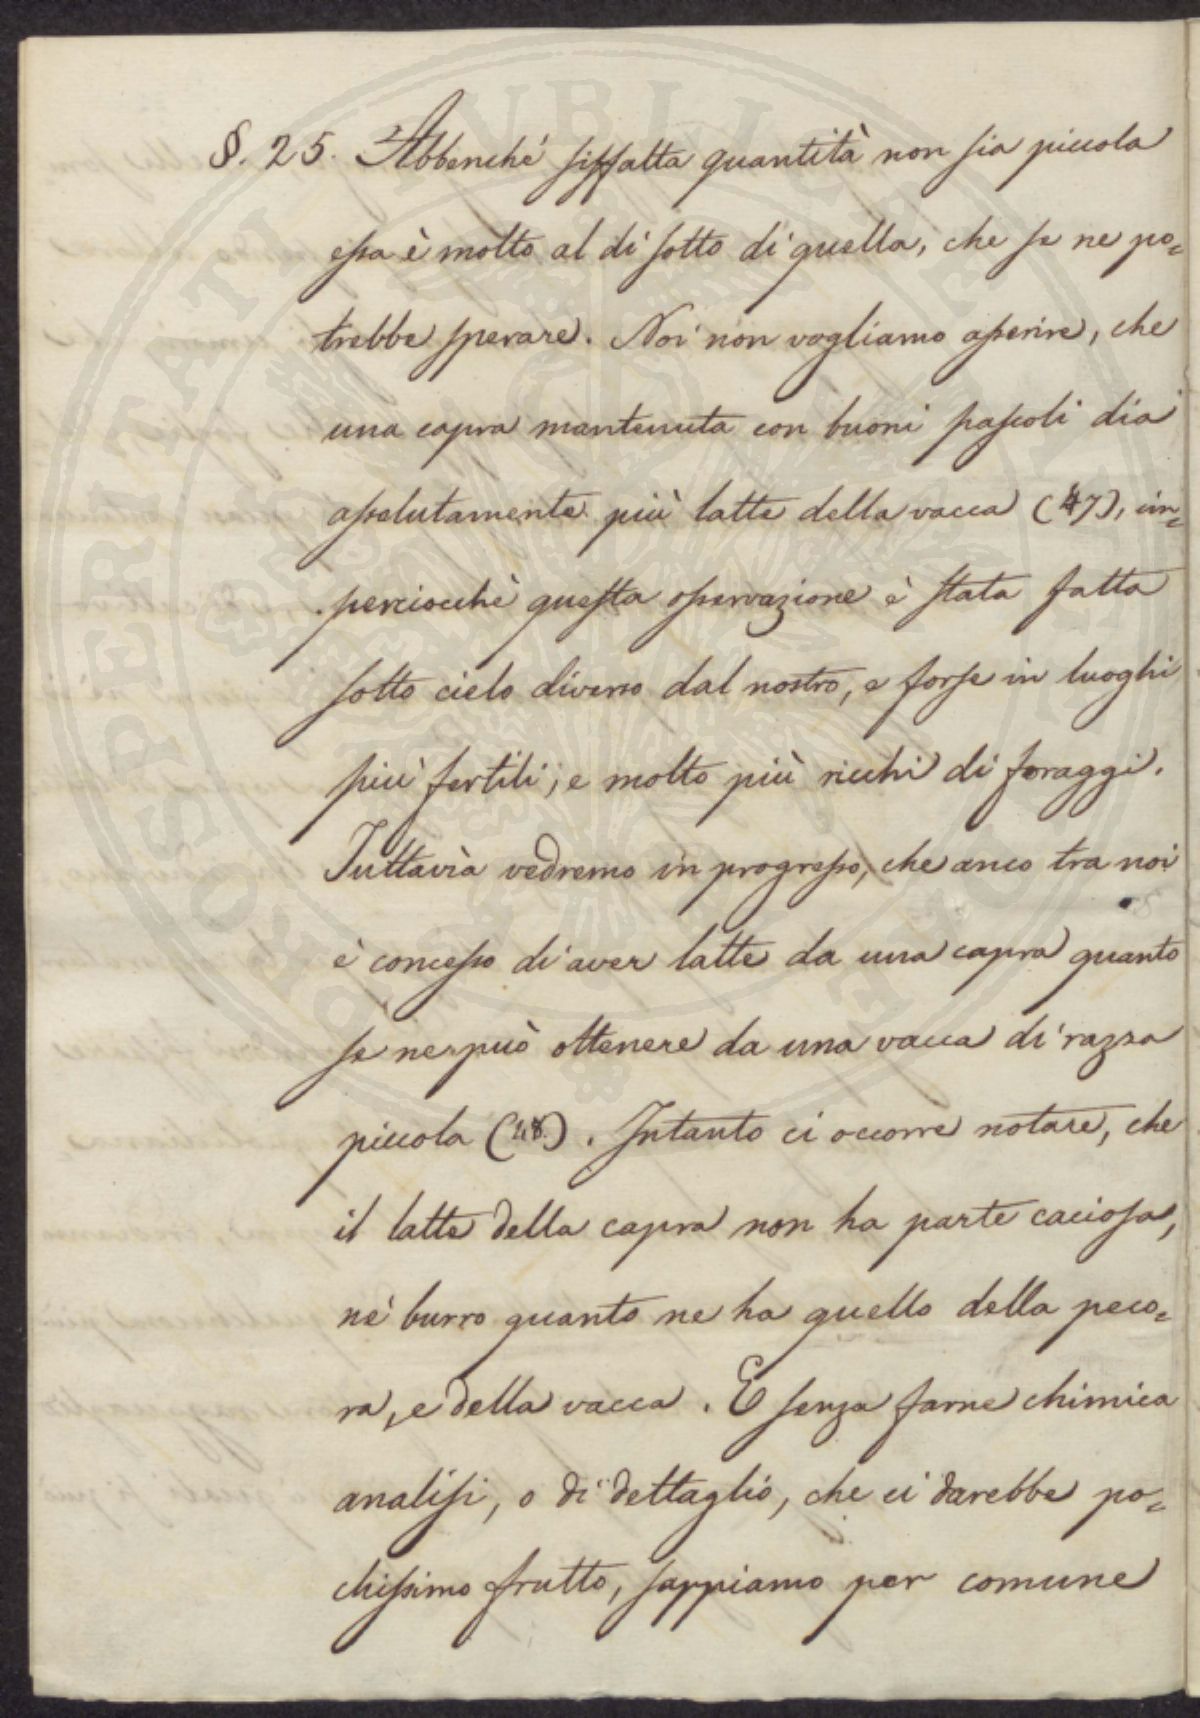 §. 25. Abbenché siffatta quantità non sia piccola
essa è molto al di sotto di quella, che se ne po=
trebbe sperare. Noi non vogliamo asserire, che
una capra mantenuta con buoni pascoli dia
assolutamente più latte della vacca (47), im=
perciocchè questa osservazione è stata fatta
sotto cielo diverso dal nostro, e forse in luoghi
più fertili, e molto più ricchi di foraggi.
Tuttavia vedremo in progresso, che anco tra noi
è concesso di aver latte da una capra quanto
se ne può ottenere da una vacca di razza
piccola (48). Intanto ci occorre notare, che
il latte della capra non ha parte caciosa,
nè burro quanto ne ha quello della peco=
ra, e della vacca. E senza farne chimica
analisi, o di dettaglio, che ci darebbe po=
chissimo frutto, sappiamo per comune
PROSPERITATI PUBLICAE AUGENDAE